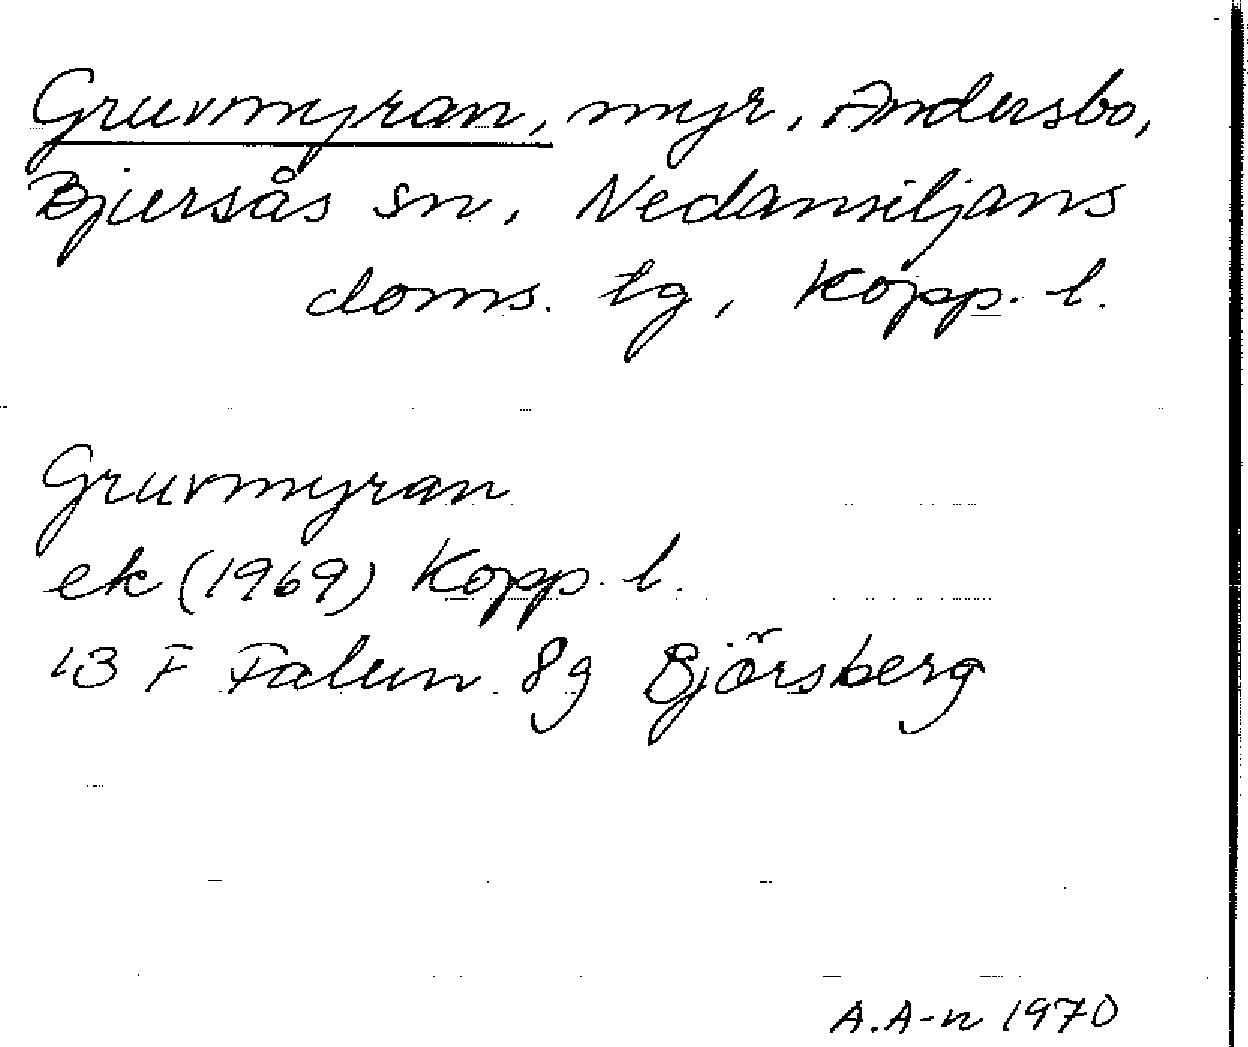 Gruvmyran, myr, Andersbo,
Bjursås sn, Nedansiljans
doms. lg, Kopp. l.
Gruvmyran
ek (1969) Kopp. l.
13 F Falun 8g Björsberg
A.A-n 1970